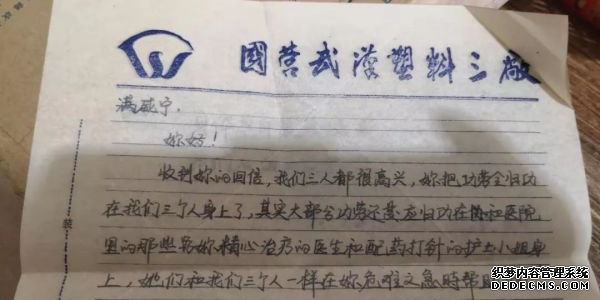 國营武漢塑料三廠
满咸宁.
妳好!
收到妳的回信,我们三人都很高兴,妳把功劳全归功
在我们三个人身上了,其实大部分功劳还是应归功在协和医院
里的那些为妳精心治疗的医生和配药打针的护士小姐身
上,她们和我们三个人一样在妳危难文急時帮
装
织梦内容管理系统
DEDECMS.COM